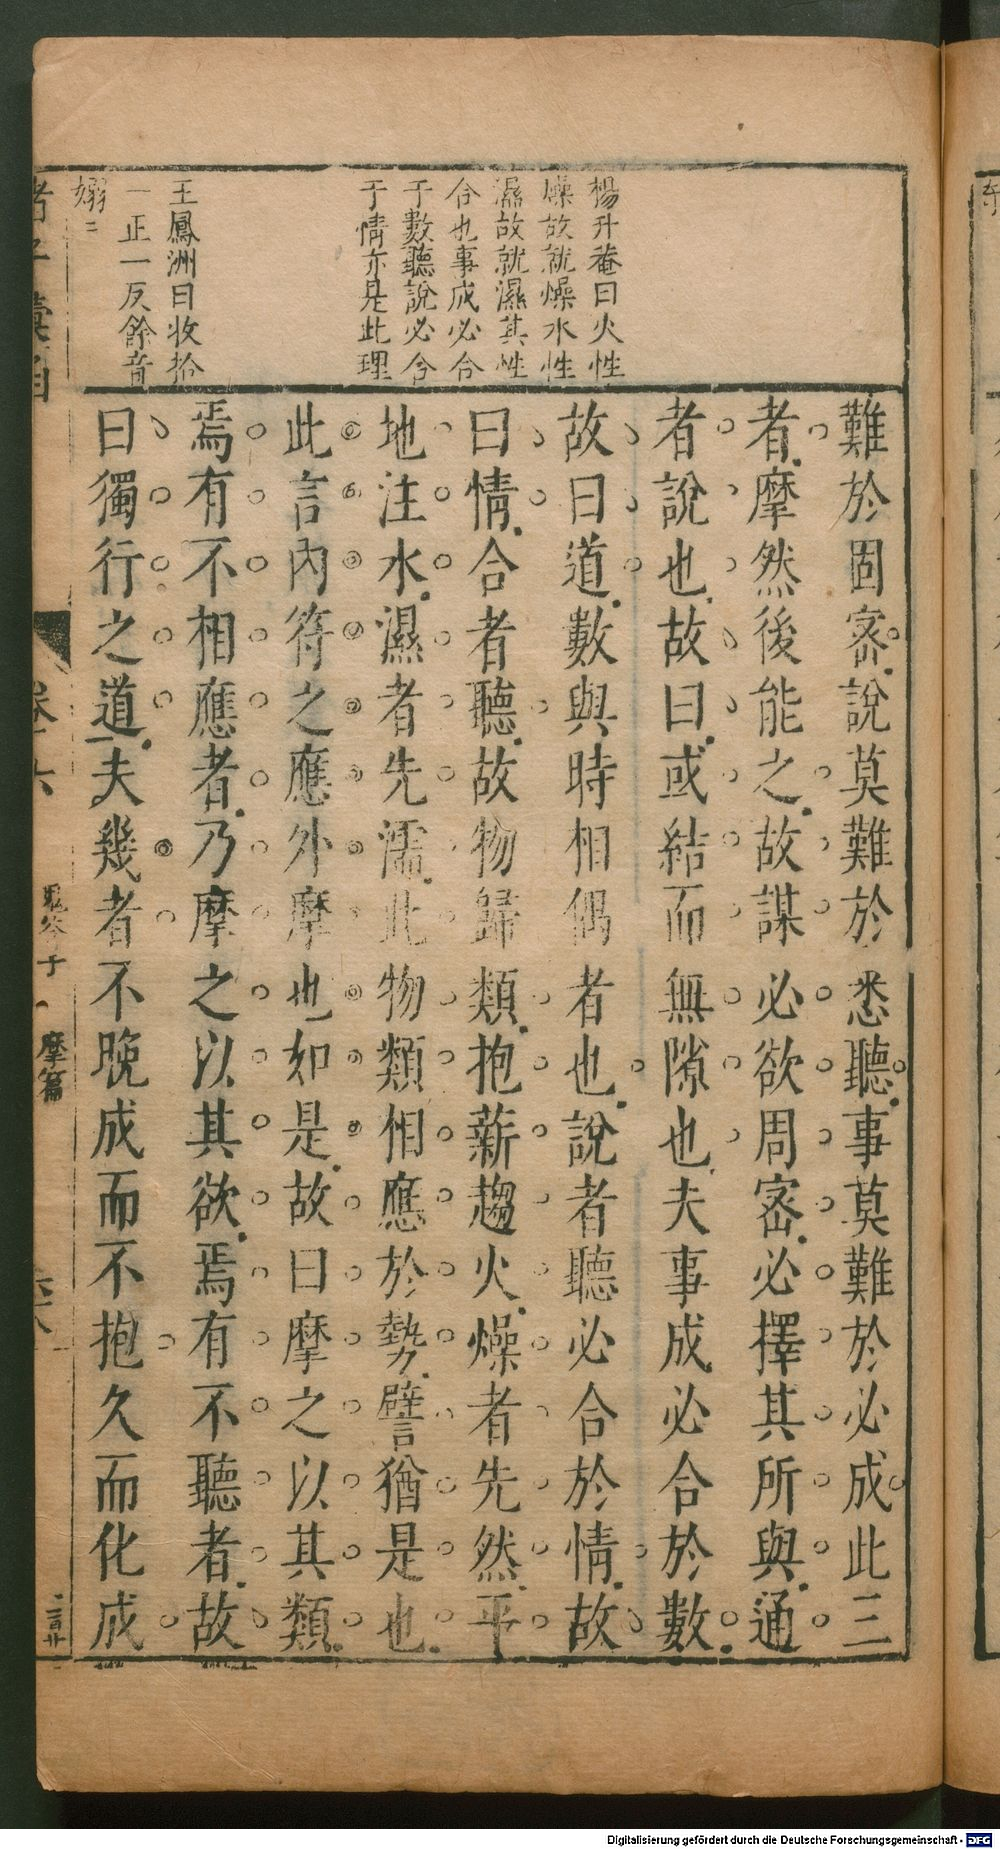 楊升菴曰火性
燥故就燥水性
濕故就濕其性
合也事成必合
于數聽說必合
于情亦是此理
王鳳洲曰收拾
一正一反餘音
嫋〻
難於固宻說莫難於悉聽事莫難於必成此三
者摩然後能之故謀必欲周宻必擇其所與通
者說也故曰或結而無隙也夫事成必合於數
故曰道數與時相偶者也說者聽必合於情故
曰情合者聽故物歸類抱薪趨火燥者先然平
地注水濕者先濡此物類相應於勢譬猶是也
此言內符之應外摩也如是故曰摩之以其類
焉有不相應者乃摩之以其欲焉有不聽者故
曰獨行之道夫幾者不晚成而不抱久而化成
鬼谷子 摩篇
Digitalisierung gefördert durch die Deutsche Forschungsgemeinschaft - DFG